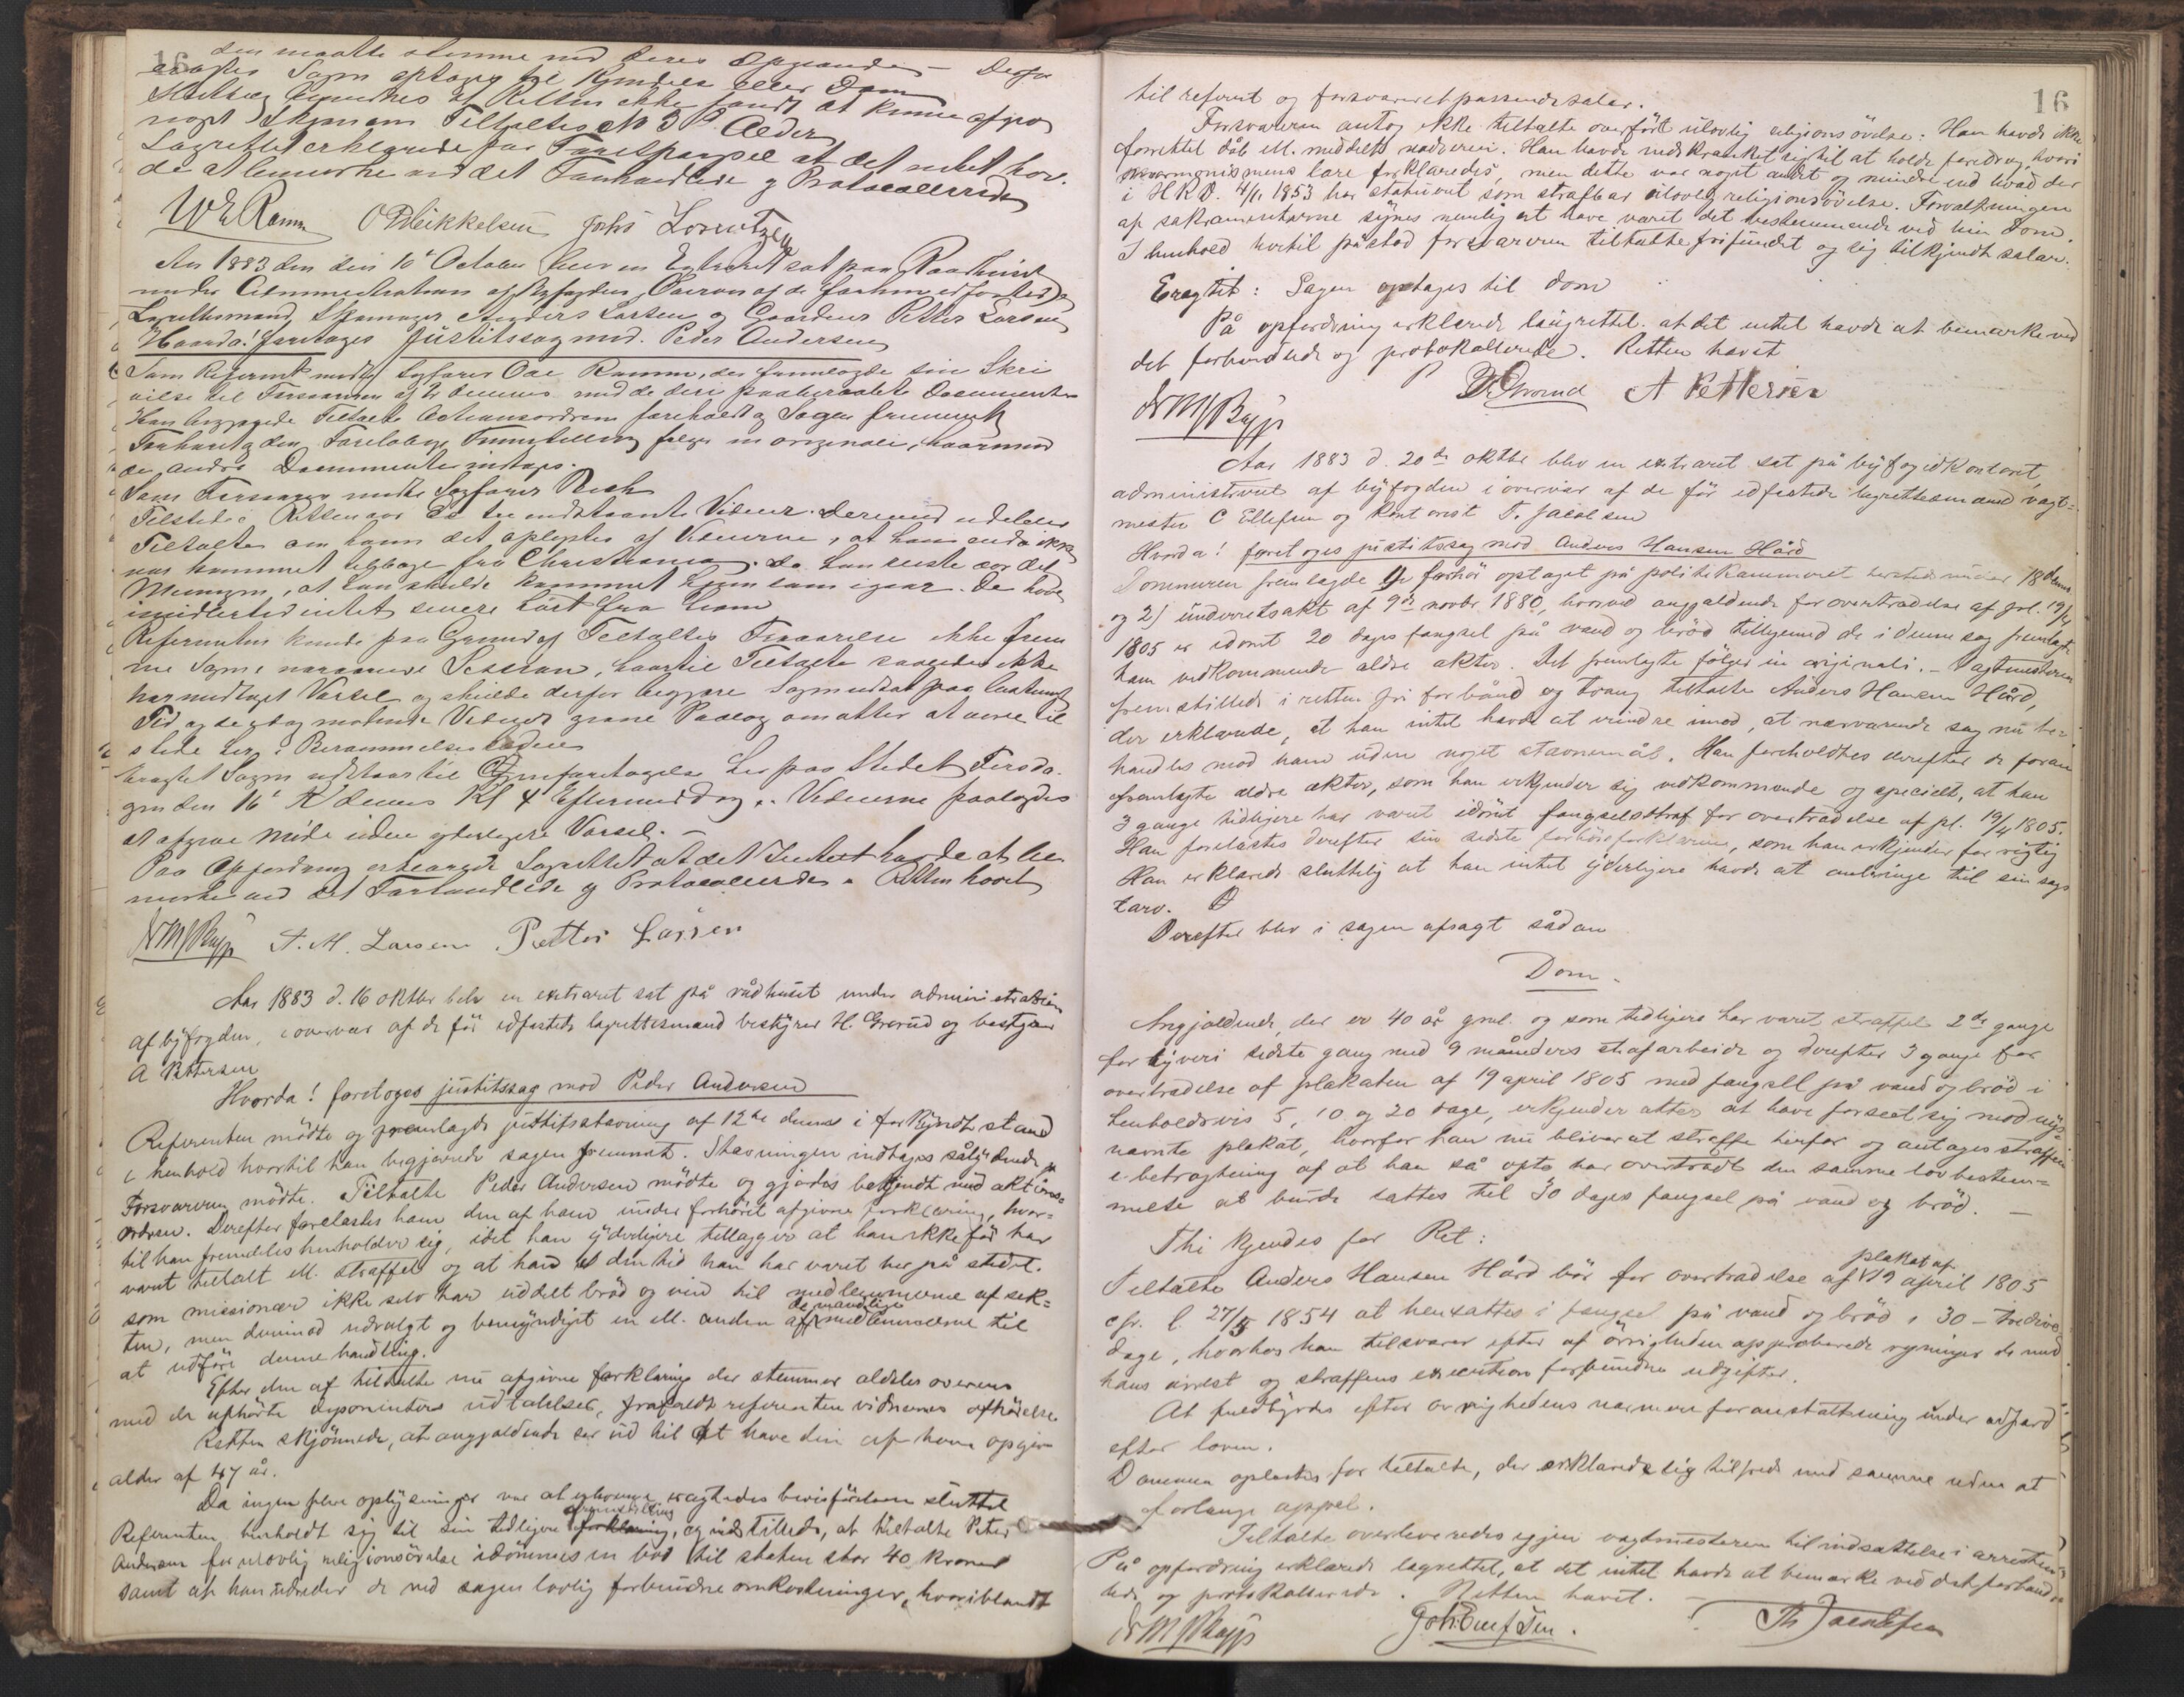 den maatte stemme med deres Opgivende – Derfor
Sagen optages til Kjendelse eller Dom
bemærkes at Retten ikke fandt at kunne afgive
noget Skjøn om Tiltaltes No 3 Alder
Lagrettet erklærede paa Forespørgsel at det intet hav-
de at bemærke ved det Forhandlede og Protocollerede
W E Ramm O Mikkelsen Johs Lorentzen
Aar 1883 den 10' October blev en Extraret sat paa Raadhuset
under Administration af Byfogden Overvær af de forhen edfæstede
Lagrettesmænd Skomager Anders Larsen og Gaardeier Petter Larsen
Hvorda! foretoges Justitssag mod. Peder Andersen
Som Referent mødte Sagfører Ole Ramm, der fremlagde sin Skri-
velse til Forsvareren af 2 dennes med de deri paaberaabte Documenter
Han begjærede Tiltalte Actionsordren foreholdt og Sagen fremmet
Forhøret og den Foreløbige Fremstilling følger in originali, hvorimod
de andre Documenter indtages.
Som Forsvarer mødte Sagfører Resh
Tilstede i Retten var de tre indstævnte Vidner. Derimod udeblev
Tiltalte om hvem det oplystes af Vidnerne, at ham endda ikke
var kommet tilbage fra Christiania. De kun vidste var det
Meningen, at han skulde kommet hjem som igaar. De havde
imidlertid intet senere hørt fra ham
Referenten kunde paa Grund af Tiltaltes Fraværelse ikke frem-
me Sagen i nærværende Session, hvortil Tiltalte saavidt ikke
har modtaget Varsel og skulde derfor begjære Sagen udsat paa bestemt
Tid og de idag mødende Vidner givne Paalæg om atter at være til-
stede her i Berammelsestiden
Eragtet Sagen udstaar til Gjenforetagelse her paa Stedet Tirsda-
gen den 16' d dennes Kl 4 Eftermiddag. Vidnerne paalagdes
at afgive Møde uden yderligere Varsel. –
Paa Opfordring erklærede Lagrettet at det Intet havde at be-
mærke ved det Forhandlede og Protocollerede. Retten hævet
A. M. Larsen Petter Larsen
Aar 1883 d. 16 oktbr blev en extraret sat på rådhuset under administration
af byfogden, i overvær af de før edfæstede lagrettesmænd bestyrer H. Grorud og
A Pettersen
Hvorda! foretoges justitssag mod Peder Andersen
Referenten mødte og fremlagde justitsstævning af 12te dennes i forkyndt stand
i henhold hvortil han begjærede sagen fremmet. Stævningen indtages sålydende
Forsvareren mødte. Tiltalte Peder Andersen mødte og gjordes bekjendt med aktions-
ordren. Derefter forelæstes ham den af ham under forhöret afgivne forklaring, hvor-
til han fremdeles henholder sig, idet han yderligere tillægger at han ikke før har
været tiltalt ell. straffet og at han i den tid han har været her på stedet.
som missionær ikke selv har uddelt brød og vin til medlemmerne af sek-
ten, men derimod udvalgt og bemyndiget en ell. anden af de mandlige medlemmerne til
at udføre denne handling.
Efter den af tiltalte nu afgivne forklaring der stemmer aldeles overens
med de afhørte deponenters udtalelser, frafaldt referenten vidnernes afhørelse.
Retten skjønnede, at angjældende ser ud til at have den af ham opgivne
alder af 47 år.
Da ingen flere oplysninger var at erhverve eragtedes bevisførelsen sluttet
Referenten henholdt sig til sin tidligere fremstilling, og indstillede, at tiltalte Peter
Andersen for ulovlig religionsøvelse idømmes en bod til staten stor 40 kroner
samt at han udreder de ved sagen lovlig forbundne omkostninger, hvoriblandt
16
til referent og forsvareret passende salær.
Forsvareren antog ikke tiltalte overført ulovlig religionsøvelse: Han havde ikke
forrettet dåb ell. meddelt nadveren. Han havde indskrænket sig til at holde foredrag, hvori
mormonismens lære forklaredes, men dette var noget andet og mindre end hvad der
i H R D. 4/11 1853 har statueret som strafbar ulovlig religionsøvelse. Forvaltningen
af sakramenterne synes nemlig at have været det bestemmende ved hin dom.
I henhold hertil påstod forsvareren tiltalte frifundet og sig tilkjendt salær.
Eragtet: Sagen optages til dom
På opfordring erklærede lagrettet at det intet havde at bemærke ved
det forhandlede og protokollerede. Retten hævet
H Grorud A Pettersen
Aar 1883 d. 20de oktbr blev en extraret sat på byfogdkontoret,
administreret af byfogden i overvær af de før edfæstede lagrettesmænd vagt-
mester C Ellefsen og kontorist T. Jacobsen
Hvorda! foretoges justitssag mod Anders Hansen Hård
Dommeren fremlagde 1) forhør optaget på politikammeret hersteds under 18 dennes
og 2) underretsakt af 9de novbr. 1880, hvorved angjældende for overtrædelse af pl. 19/4
1805 er idømt 20 dages fængsel på vand og brød tilligemed de i denne sag fremlagte
ham vedkommende ældre akter. Det fremlagte følger in originali. – Vagtmesteren
fremstillede i retten fri for bånd og tvang tiltalte Anders Hansen Hård,
der erklærede, at han intet havde at erindre imod, at nærværende sag nu be-
handles mod ham uden noget stævnemål. Han foreholdtes derefter de foran
fremlagte ældre akter, som han erkjender sig vedkommende og specielt, at han
3 gange tidligere har været idømt fængselsstraf for overtrædelse af pl. 19/4 1805.
Han forelæstes derefter sin sidste forhørsforklaring, som han erkjender for rigtig
Han erklærede sluttelig at han intet yderligere havde at anbringe til sin sags
tarv.
Derefter blev i sagen afsagt sådan
Dom.
Angjældende, der er 40 år gml. og som tidligere har været straffet 2de gange
for tyveri sidste gang med 9 måneders strafarbeide og derefter 3 gange for
overtrædelse af plakaten af 19 april 1805 med fængsel på vand og brød i
henholdsvis 5, 10 og 20 dage, erkjender atter at have forseet sig mod nys-
nævnte plakat, hvorfor han nu bliver at straffe herfor og antages straffen
i betragtning af at han så ofte har overtrådt den samme lovbestem-
melse at burde sættes til 30 dages fængsel på vand og brød. –
Thi kjendes for Ret:
Tiltalte Anders Hansen Hård bør for overtrædelse af plakat af 19 april 1805
cfr. l. 27/5 1854 at hensættes i fængsel på vand og brød i 30 – tredive
dage, hvorhos han tilsvarer efter af øvrigheden approberede regninger de med
hans arrest og straffens execution forbundne udgifter.
At fuldbyrdes efter øvrighedens nærmere foranstaltning under adfærd
efter loven.
Dommen oplæstes for tiltalte, der erklærede sig tilfreds med samme uden at
forlange appel.
Tiltalte overleveredes igjen vagtmesteren til indsættelse i arresten
På opfordring erklærede lagrettet, at det intet havde at bemærke ved det forhand-
lede og protokollerede. Retten hævet. –
Th Jacobsen